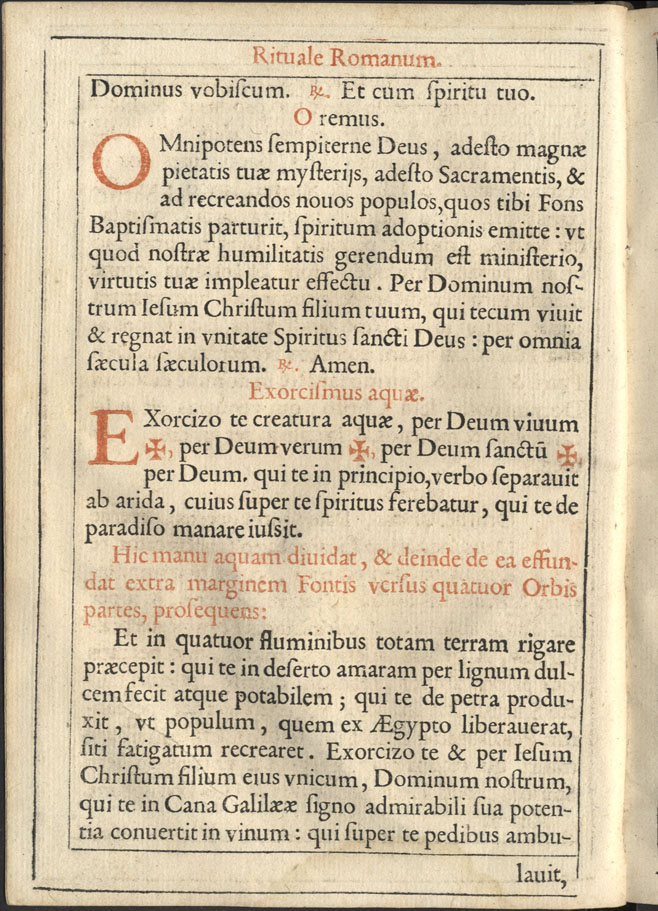 Rituale Romanum.
Dominus vobiſcum. ℟. Et cum ſpiritu tuo.
O remus.
OMnipotens ſempiterne Deus, adeſto magnæ
pietatis tuæ myſterijs, adeſto Sacramentis, &
ad recreandos nouos populos, quos tibi Fons
Baptiſmatis parturit, ſpiritum adoptionis emitte : vt
quod noſtræ humilitatis gerendum eſt miniſterio,
virtutis tuæ impleatur effectu. Per Dominum noſ-
trum Ieſum Chriſtum filium tuum, qui tecum viuit
& regnat in vnitate Spiritus ſancti Deus : per omnia
ſæcula ſæculorum. ℟. Amen.
Exorciſmus aquæ.
EXorcizo te creatura aquæ, per Deum viuum
✠, per Deum verum ✠, per Deum ſanctū ✠
per Deum. qui te in principio, verbo ſeparauit
ab arida, cuius ſuper te ſpiritus ferebatur, qui te de
paradiſo manare iuſsit.
Hic manu aquam diuidat, & deinde de ea effun-
dat extra marginem Fontis verſus quàtuor Orbis
partes, proſequens:
Et in quatuor fluminibus totam terram rigare
præcepit : qui te in deſerto amaram per lignum dul-
cem fecit atque potabilem ; qui te de petra produ-
xit, vt populum, quem ex Ægypto liberauerat,
ſiti fatigatum recrearet. Exorcizo te & per Ieſum
Chriſtum filium eius vnicum, Dominum noſtrum,
qui te in Cana Galilææ ſigno admirabili ſua poten-
tia conuertit in vinum : qui ſuper te pedibus ambu-
lauit,